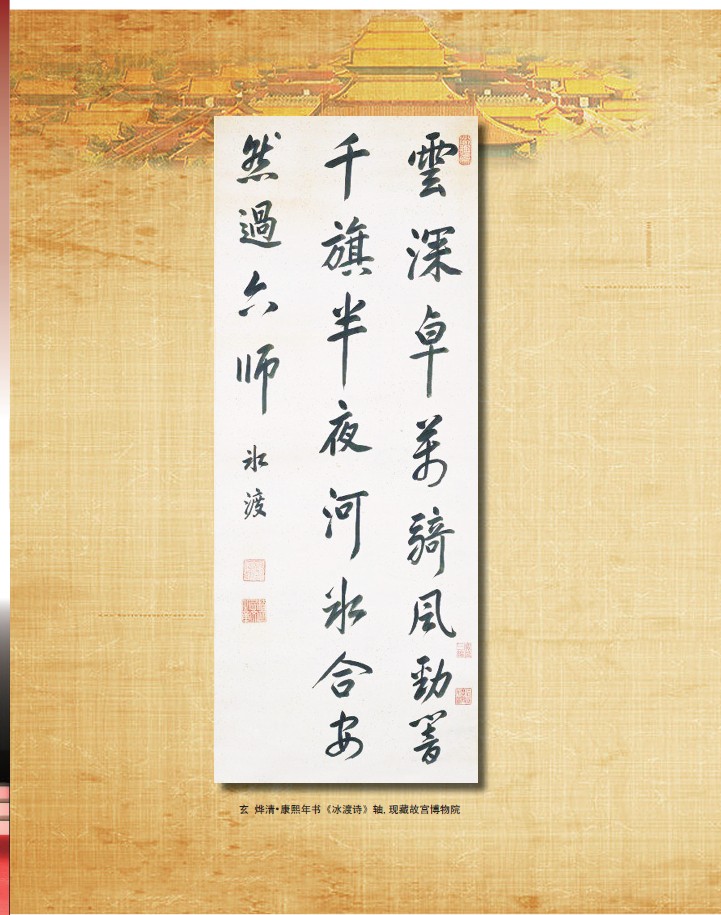 雲深卓萬騎風勁響
千旗半夜河氷合安
然過六师
氷渡
玄 烨清•康熙年书《冰渡诗》轴,现藏故宫博物院